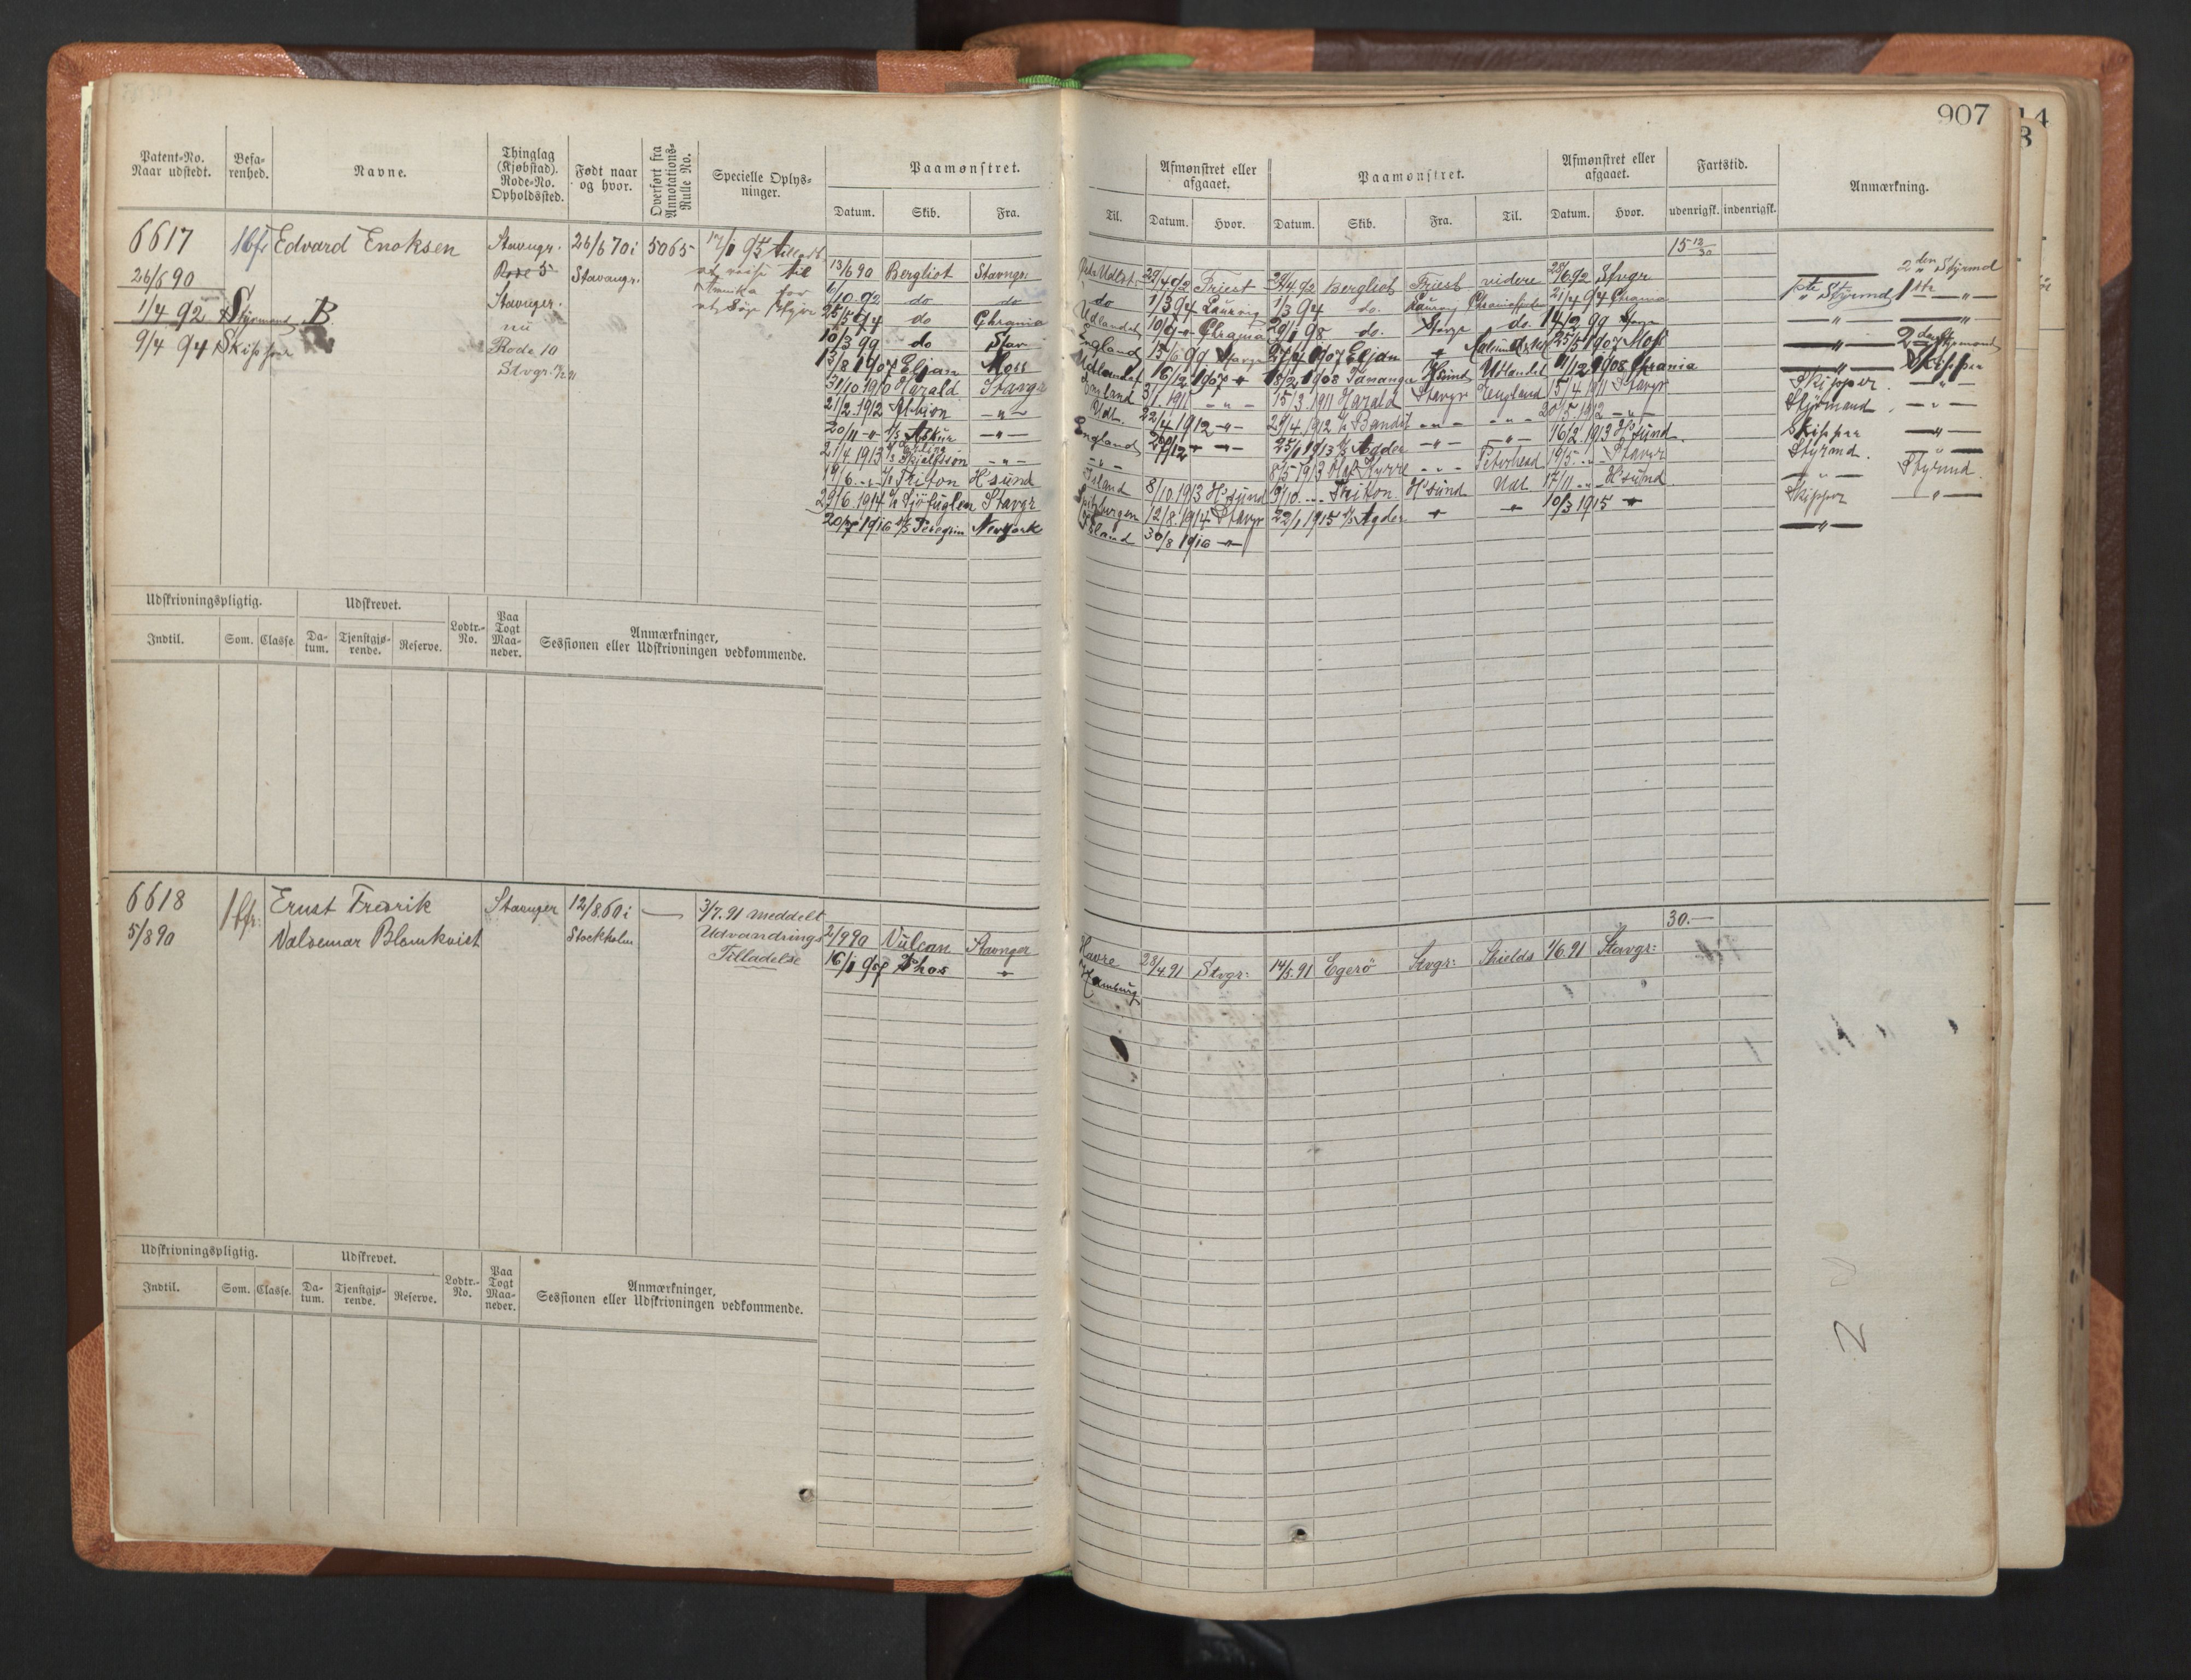 907
Patent-No. Naar udstedt.
Befarenhed.
Navne.
Thinglag (Kjøbstad). Rode-No. Opholdssted.
Født naar og hvor.
Overført fra Annotations-Rulle No.
Specielle Oplysninger.
Paamønstret.
Datum. Skib. Fra.
6617 Edvard Enoksen Stavngr. 26/6 70 i 5065
26/6 90 Rode 5 Stavangr.
1/4 92 Styrmand B Stavnger.
9/4 94 Skipper nu
Rode 10
Stvgr.
17/1 95 tilladt
at reise til
Amrika for
at søge Hyre
13/6 90 Bergliot Stavnger
6/10 92 do do
25/5 94 do Chrania
10/3 99 do Stav
13/8 1907 Eljan Moss
31/10 1910 Harald Stavgr
21/2 1912 Albion -"-
20/11 -"- Askur -"-
21/4 1913 Skjalgsson -"-
19/6 Triton H'sund
29/6 1914 Sjöfuglen Stavgr
20/7 1916 Peregrin Newyork
Udskrivningspligtig. Udskrevet. Lodtr.-No. Paa Togt Maaneder. Anmærkninger, Sessionen eller Udskrivningen vedkommende.
Indtil. Som. Classe. Datum. Tjenstgjørende. Reserve.
6618 Ernst Fredrik Stavnger 12/8 60 i — 3/7. 91 meddelt
5/8 90 Valdemar Blomkvist Stockholm Udvandrings
Tilladelse
2/9 90 Vulcan Stavnger
Thor -"-
Udskrivningspligtig. Udskrevet. Lodtr.-No. Paa Togt Maaneder. Anmærkninger, Sessionen eller Udskrivningen vedkommende.
Indtil. Som. Classe. Datum. Tjenstgjørende. Reserve.
Afmønstret eller afgaaet. Paamønstret. Afmønstret eller afgaaet. Fartstid. Anmærkning.
Til. Datum. Hvor. Datum. Skib. Fra. Til. Datum. Hvor. udenrigsk. indenrigsk.
15 12/30
29/4 92 Triest 29/4 92 Bergliot Triest videre 28/6 92 Stvgr 2den Styrmd
do 1/3 94 Laurvig 1/3 94 do. Laurvig 21/4 94 Chrania 1ste Styrmd 1ste -"-
Udlandet Chrania 29/1 98 do. Stavgr do. 14/2 99 Stavgr -"- -"-
England 15/6 99 Stavgr 1907 Eljan 25/5 1907 Moss -"- 2den Styrmand
Udlandet 16/12 1907 -"- 18/2 1908 Tananger H'sund Udlandet 11/12 1908 Chrania -"- Skipper
England 3/1. 1911 -"- 15/3. 1911 Harald Stavgr England 15/4 1911 Stavgr Skipper. -"-
Udl. 22/4 1912 -"- 29/4 1912 -"- -"- 20/5 1912 -"- Styrmand. -"-
England -"- 25/1 1913 Agder -"- -"- 16/2. 1913 H'sund Skipper -"-
-"- 8/5 1913 -"- Peterhead 19/5 -"- Stavgr Styrmd. -"-
Island 8/10 1913 H'sund 9/10 Triton H'sund Udl 17/11 -"- H'sund -"- Styrmd.
Spitzbergen 12/8. 1914 Stavgr 22/1 1915 Agder -"- -"- 10/3 1915 -"- Skipper -"-
Island 30/8 1916 -"- -"-
30.—
Havre 28/4 91 Stvgr: 14/5. 91 Egerö Stvgr: Shields 1/6. 91 Stavgr:
Hamburg